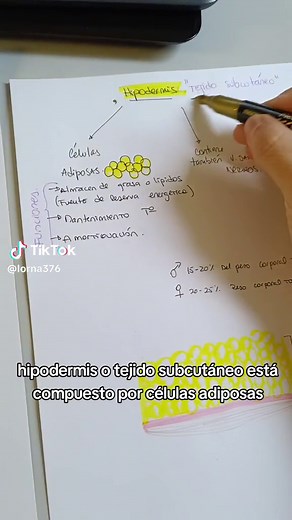 Hipodermis "Tejido subcutáneo"
Células
Adiposas
Contiene
también
Funciones
Almacen de grasa o lípidos
(Fuente de reserva energética)
Mantenimiento Tª
Amortiguación.
TikTok
@lorna376
♂ 15-20% del peso corporal
♀ 20-25% peso corporal
hipodermis o tejido subcutáneo está
compuesto por células adiposas